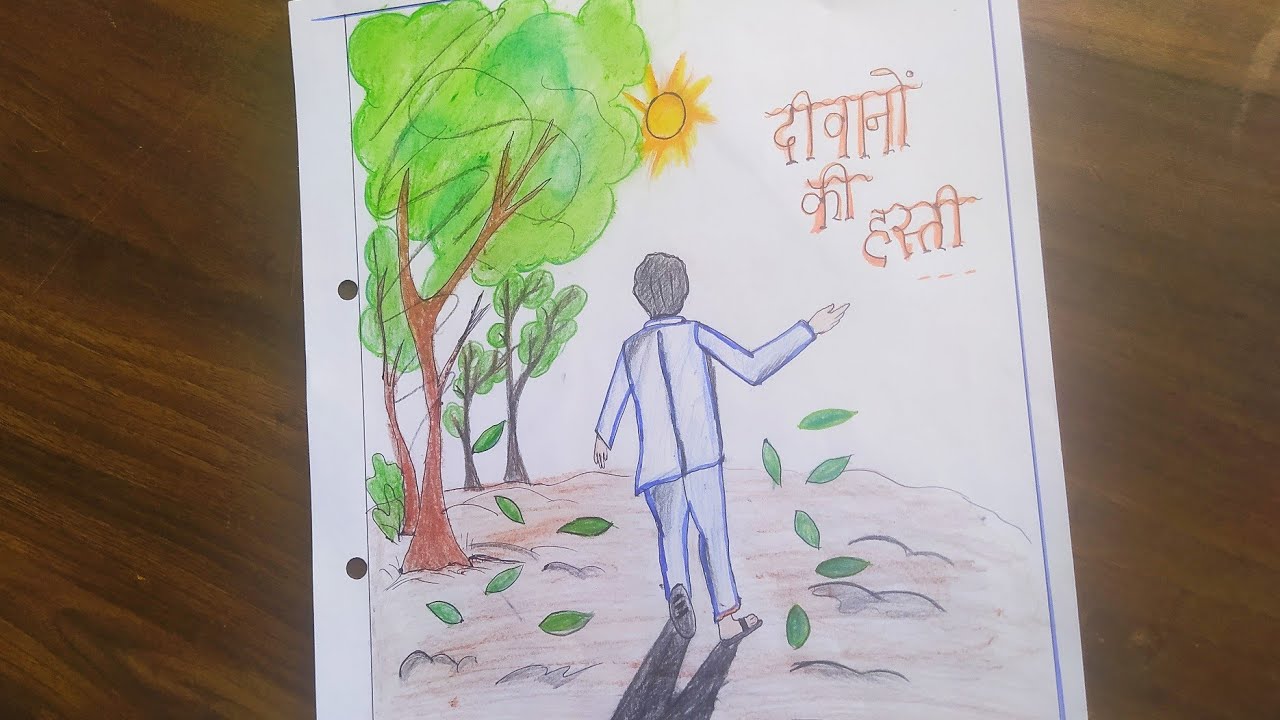 दीवानों
की
हस्ती